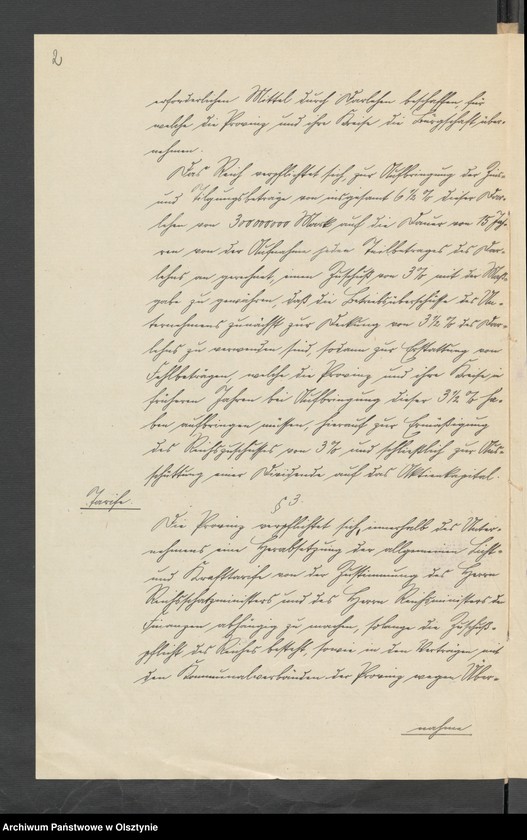 2
erforderlichen Mittel durch Darlehen beschaffen, für
welche die Provinz und ihre Kreise die Bürgschaft über-
nehmen.
Das Reich verpflichtet sich, zur Aufbringung der Zins-
und Tilgungsbeträge von insgesamt 6 ½ % dieser Dar-
lehen von 300 000 000 Mark auf die Dauer von 15 Jah-
ren von der Aufnahme jeden Teilbetrages des Dar-
lehns an gerechnet, einen Zuschuß von 3 % mit der Maß-
gabe zu gewähren, daß die Betriebsüberschüsse des Un-
ternehmens zunächst zur Deckung von 3 ½ % des Dar-
lehns zu verwenden sind, sodann zur Erstattung von
Fehlbeträgen, welche die Provinz und ihre Kreise in
früheren Jahren bei Aufbringung dieser 3 ½ % ha-
ben aufbringen müssen, hierauf zur Ermäßigung
des Reichszuschusses von 3 % und schließlich zur Aus-
schüttung einer Dividende auf das Aktienkapital.
Tarife
§ 3.
Die Provinz verpflichtet sich, innerhalb des Unter-
nehmens eine Herabsetzung der allgemeinen Licht-
und Krafttarife von der Zustimmung des Herrn
Reichsschatzministers und des Herrn Reichsministers der
Finanzen abhängig zu machen, solange die Zuschuß-
pflicht des Reiches besteht, sowie in den Verträgen mit
den Kommunalverbänden der Provinz wegen Über-
nahme
Archiwum Państwowe w Olsztynie